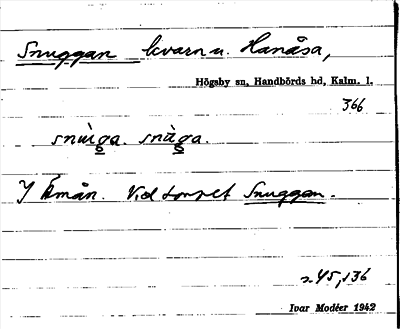 Snuggan kvarn u. Hanåsa,
Högsby sn, Handbörds hd, Kalm. l.
366
snùga. snàga.
I Emån. Vid torpet Snuggan.
45,136
Ivar Modéer 1942